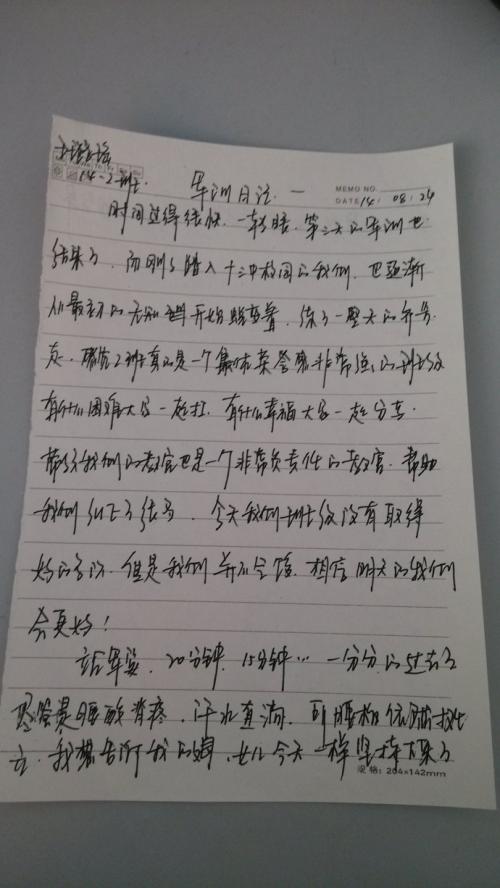 14-2班
军训日记 一
MEMO NO.
DATE 14/ 08/ 24
时间过得很快,一转眼,第三天的军训也
结束了,而刚刚踏入十三中校园的我们,也逐渐
从最初的无知 开始蜕变着,练了一整天的
走,确信2班真的是一个集体荣誉 非常强的班级
有什么困难大家一起扛,有什么幸福大家一起分享.
带领我们的教官也是一个非常负责任的教官,帮助
我们纠正了 今天我们班级没有取得
好的名次,但是我们并不气馁,相信明天的我们
会更好!
站军姿,20分钟,15分钟… 一分分的过去了
尽管是腰酸背疼,汗水直流,可腰板依然挺
立,我想告诉我的妈,女儿今天一样坚持下来了
规格:204×142mm